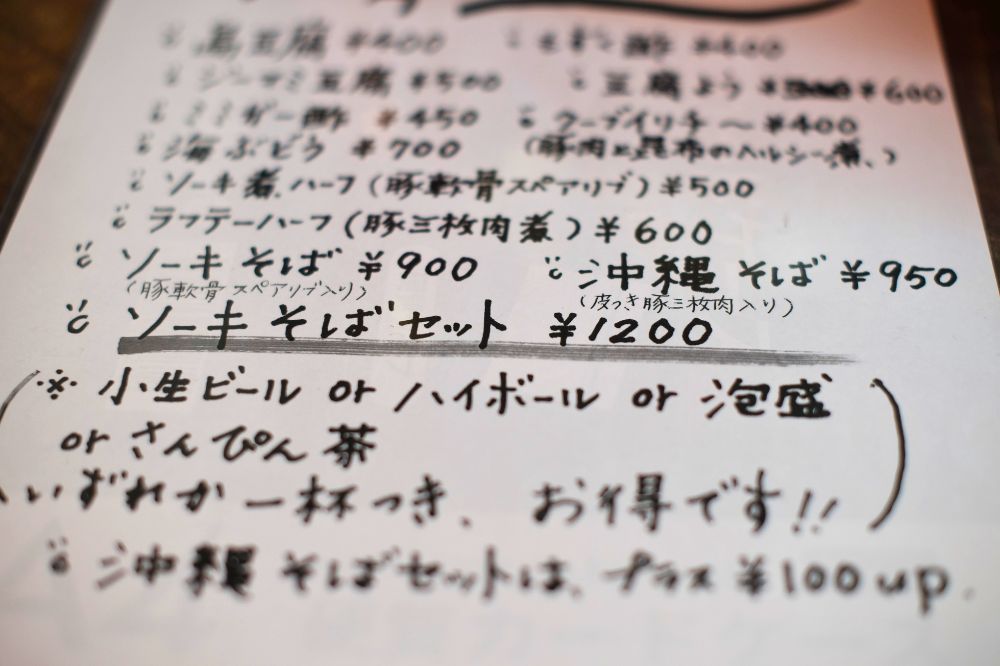 島豆腐 ¥400 モズク酢 ¥400
ジーマミ豆腐 ¥500 豆腐よう ¥600
ミミガー酢 ¥450 クーブイリチ〜¥400
海ぶどう ¥700 (豚肉と昆布のヘルシー煮)
ソーキ煮ハーフ(豚軟骨スペアリブ)¥500
ラフテーハーフ(豚三枚肉煮)¥600
ソーキそば ¥900 沖縄そば ¥950
(豚軟骨スペアリブ入り) (皮つき豚三枚肉入り)
ソーキそばセット ¥1200
(※小生ビール or ハイボール or 泡盛
or さんぴん茶
いずれか一杯つき、お得です!!)
沖縄そばセットは、プラス ¥100 up.